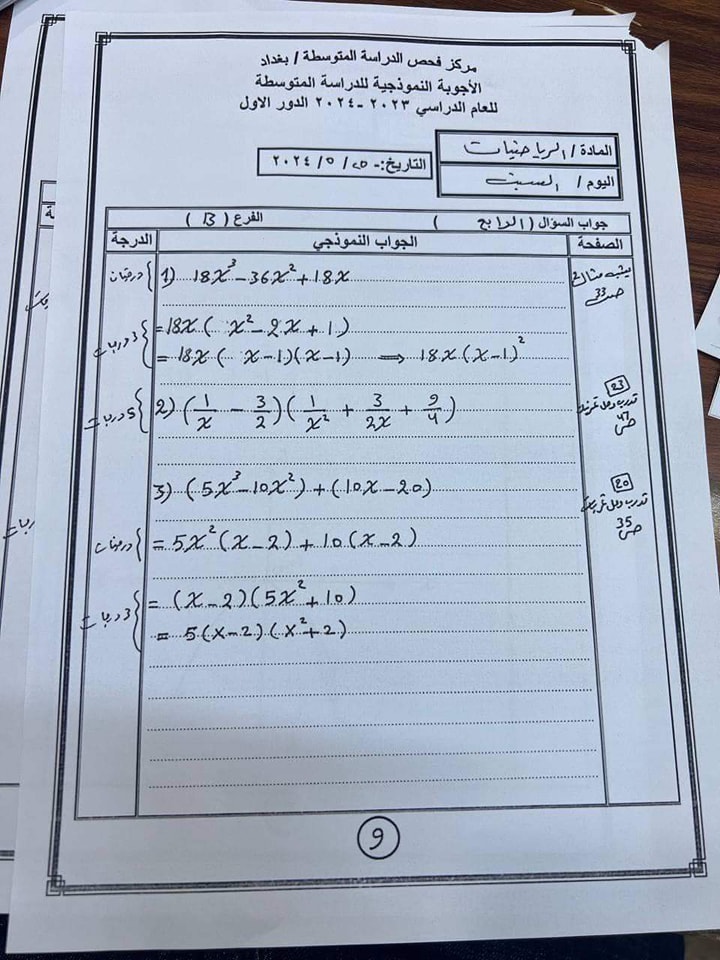 مركز فحص الدراسة المتوسطة / بغداد
الأجوبة النموذجية للدراسة المتوسطة
للعام الدراسي ٢٠٢٣ -٢٠٢٤ الدور الاول
المادة / الرياضيات
اليوم / السبت
التاريخ:- ٢٥ / ٥ / ٢٠٢٤
جواب السؤال ( الرابع ) الفرع ( B )
الصفحة الجواب النموذجي الدرجة
يشبه مثال 2
ص 33
1) 18x³ - 36x² + 18x
درجتان
= 18x ( x² - 2x + 1 )
= 18x ( x - 1)(x - 1) ⟹ 18x (x - 1)²
3 درجات
23
تدرب وحل تمرينات
ص 47
2) (1/x - 3/2)(1/x² + 3/2x + 9/4)
5 درجات
20
تدرب وحل تمرينات
ص 35
3) (5x³ - 10x²) + (10x - 20)
= 5x² (x - 2) + 10 (x - 2)
درجتان
= (x - 2)(5x² + 10)
= 5(x - 2)(x² + 2)
3 درجات
9